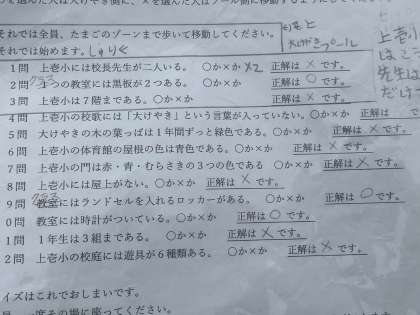 それでは全員、たまごのゾーンまで歩いて移動してください。
それでは始めます。
1問 上壱小には校長先生が二人いる。 〇か×か ×2 正解は×です。
2問 クラス 1つの教室には黒板が2つある。 〇か×か 正解は〇です。
3問 上壱小は7階まである。〇か×か 正解は×です。
4問 上壱小の校歌には「大けやき」という言葉が入っていない。〇か×か 正解は
5問 大けやきの木の葉っぱは1年間ずっと緑色である。〇か×か 正解は×です。
6問 上壱小の体育館の屋根の色は青色である。〇か×か 正解は×です。
7問 上壱小の門は赤・青・むらさきの3つの色である 〇か×か 正解は×です。
8問 上壱小には屋上がない。〇か×か 正解は×です。
9問 クラス 教室にはランドセルを入れるロッカーがある。 〇か×か 正解は〇です。
0問 教室には時計がついている。〇か×か 正解は〇です。
1問 1年生は3組まである。 〇か×か 正解は×です。
2問 上壱小の校庭には遊具が6種類ある。 〇か×か 正解は×です。
イズはこれでおしまいです。
度その場に座ってください。
上壱小
先生は